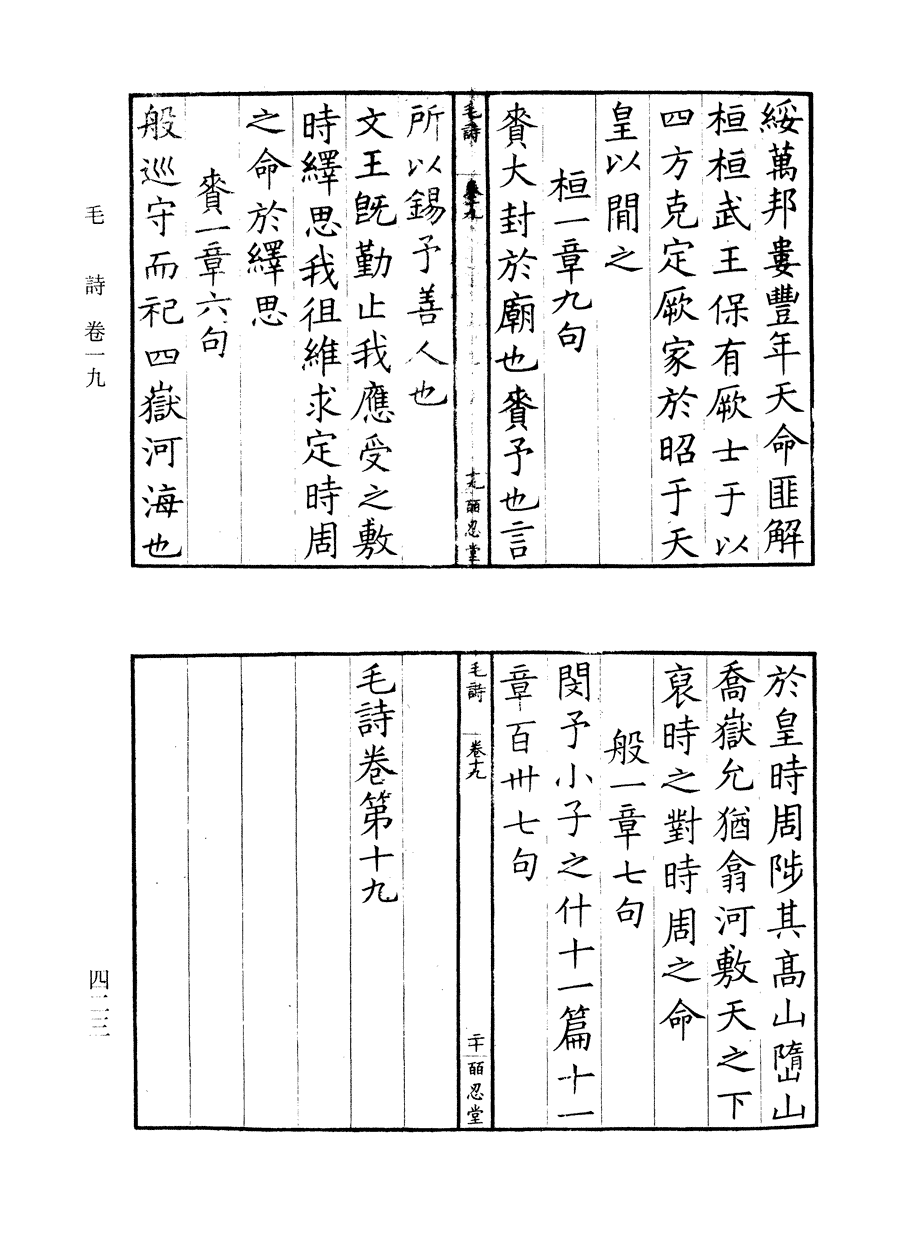 綏萬邦婁豐年天命匪解
桓桓武王保有厥士于以
四方克定厥家於昭于天
皇以閒之
桓一章九句
賚大封於廟也賚予也言
毛詩 卷十九 十九 皕忍堂
所以錫予善人也
文王旣勤止我應受之敷
時繹思我徂維求定時周
之命於繹思
賚一章六句
般巡守而祀四嶽河海也
於皇時周陟其高山墮山
喬嶽允猶翕河敷天之下
裒時之對時周之命
般一章七句
閔予小子之什十一篇十一
章百卅七句
毛詩 卷十九 二十 皕忍堂
毛詩卷第十九
毛詩 卷一九
四二三